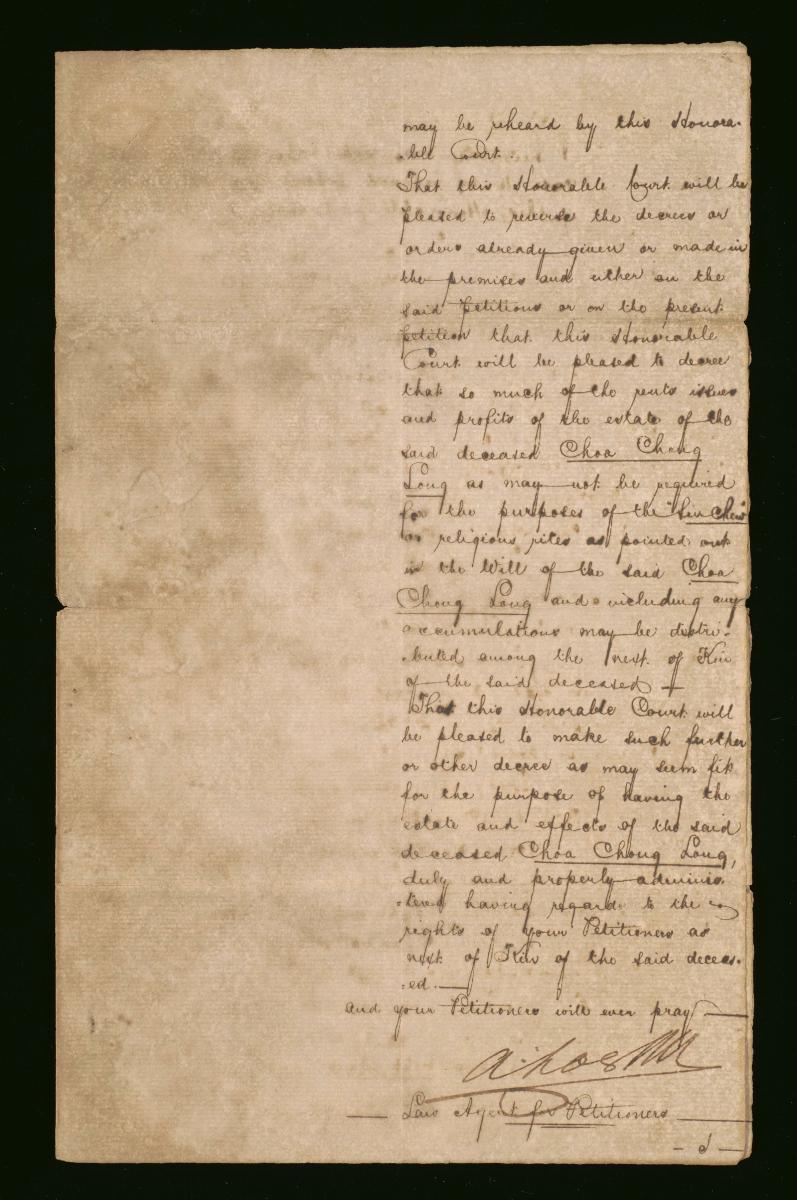 may be reheard by this Honora-
-ble Court.
That this Honorable Court will be
pleased to reverse the decrees or
orders already given or made in
the premises and either on the
said Petitions or on the present
petition that this Honorable
Court will be pleased to decree
that so much of the rents issues
and profits of the estate of the
said deceased Choa Chong
Long as may not be required
for the purposes of the "Sin Chew"
or religious rites as pointed out
in the Will of the said Choa
Chong Long and including any
accumulations may be distri-
-buted among the next of Kin
of the said deceased —
That this Honorable Court will
be pleased to make such further
or other decree as may seem fit
for the purpose of having the
estate and effects of the said
deceased Choa Chong Long,
duly and properly adminis-
-tered having regard to the
rights of your Petitioners as
next of Kin of the said deceas-
-ed. —
and your Petitioners will ever pray —
— Law Agent for Petitioners —